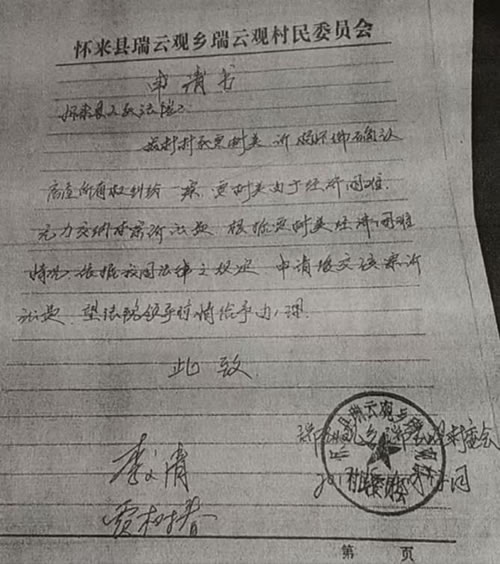 怀来县瑞云观乡瑞云观村民委员会
申请书
怀来县人民法院：
兹村村民贾树美 诉 确认
房屋所有权纠纷一案，贾树美由于经济困难，
无力交纳本案诉讼费，根据贾树美经济困难
情况，依据我国法律之规定，申请缓交该案诉
讼费，望法院领导酌情给予办理。
此致
瑞云观乡瑞云观村委会
李文清
贾树春
第 页